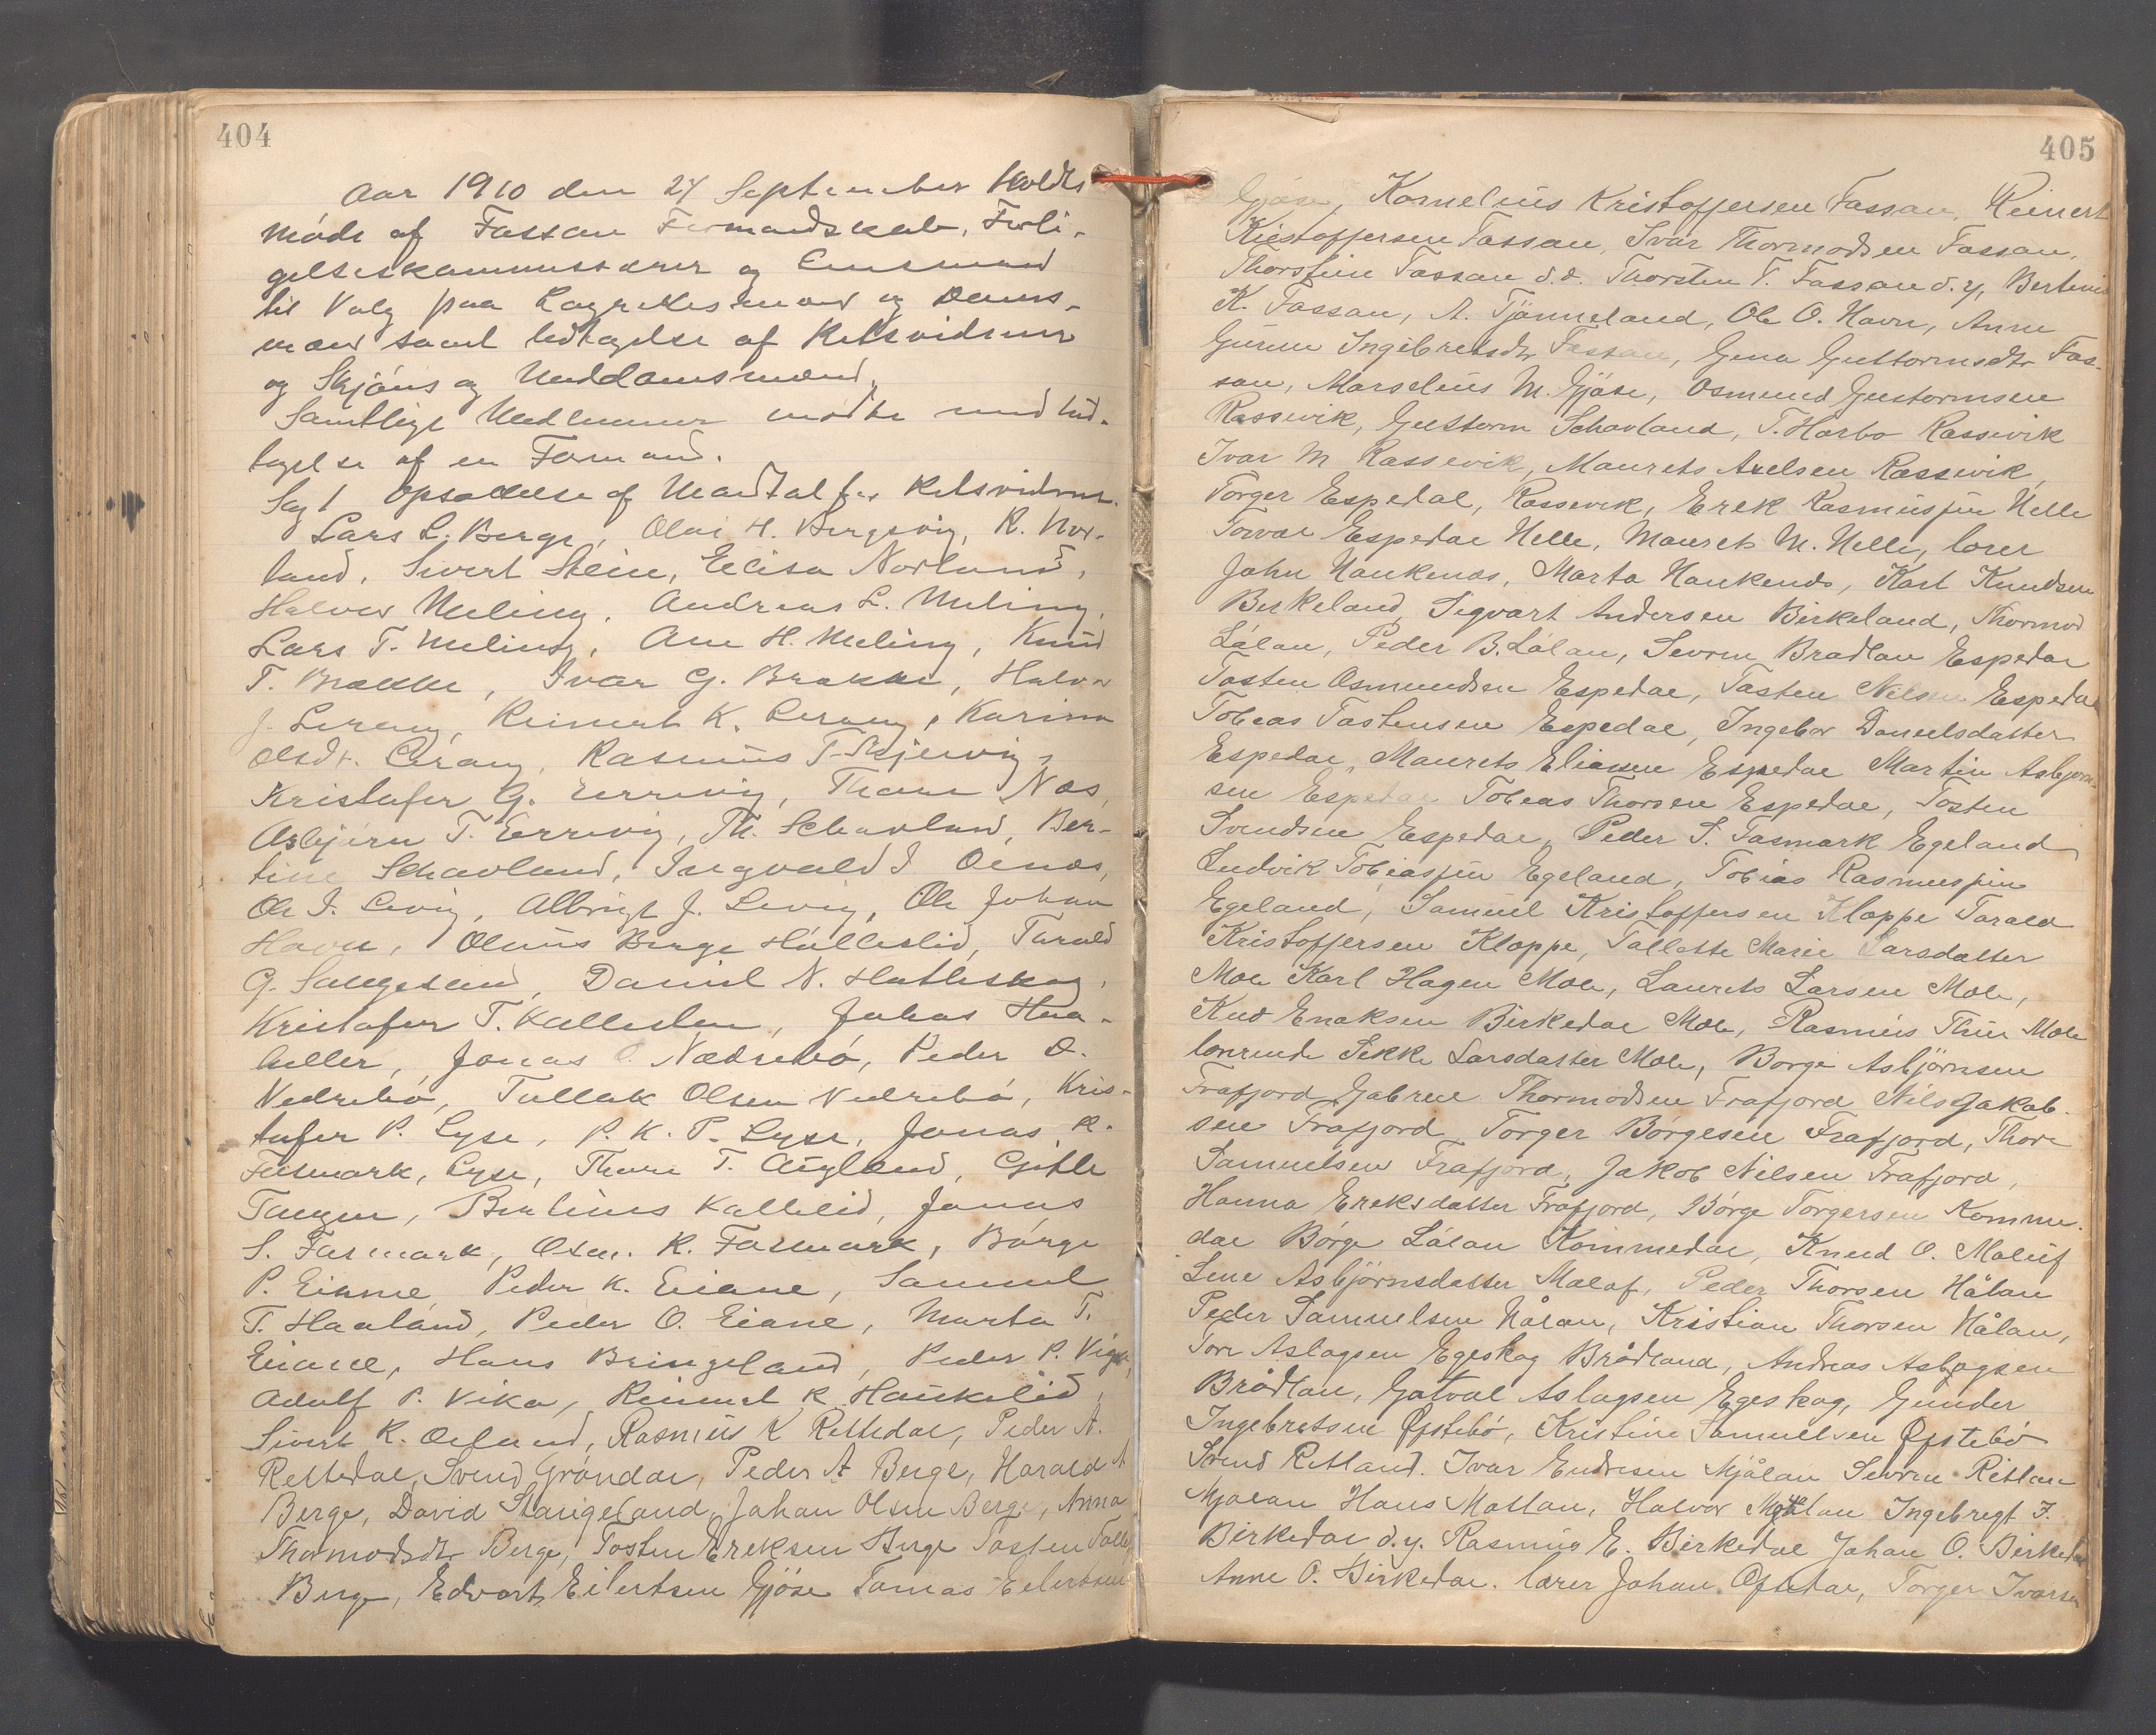 404
Aar 1910 den 24 September holdts
møde af Fossan Formandskab, Forli-
gelseskommissærer og Lensmand
til Valg paa Lagrettesmænd og Doms-
mænd samt Udtagelse af Retsvidner
og Skjöns og Meddomsmænd.
Samtlige Medlemmer mødte med Und-
tagelse af en Formand.
Sag 1 Opsættelse af Mandtal for Retsvidner.
Lars L. Berge, Olai H. Bergevig, R. Nor-
land, Sivert Stein, Elisa Norland,
Halvor Meling, Andreas L. Meling,
Lars T. Meling, Ane H. Meling, Knud
T. Brække, Ivar G. Brække, Halvor
J. Lerang, Reinert K. Lerang, Karina
Olsdt. Lerang, Rasmus T. Skjervig,
Kristofer G. Errevig, Thore Næs,
Asbjørn T. Errevig, Th. Schavland, Ber-
tine Schavland, Ingvald I Oenæs,
Ole I. Levig, Albrigt J. Levig, Ole Johan
Havn, Olaus Berge Hölleslid, Tarald
G. Sangesand, Daniel N. Hatleskog,
Kristofer T. Kallesten, Johas Haa-
heller, Jonas O. Nædrebö, Peder O.
Nedrebö, Tallak Olsen Nedrebö, Kris-
tofer P. Lyse, P. K. P. Lyse, Jonas R.
Fosmark, Lyse, Thore T. Øigland, Gitle
Tangen, Bertinus Kallelid, Jonas
S. Fosmark, Osm. R. Fosmark, Börge
P. Eiane, Peder K. Eiane, Samuel
T. Haaland, Peder O. Eiane, Marta T.
Eiane, Hans Bringeland, Peder P. Vigh,
Adolf P. Vika, Reinert R. Haukelid,
Sivert R. Oelund, Rasmus K Rettedal, Peder A.
Rettedal, Svend Gröndal, Peder A Berge, Harald A
Berge, David Stangeland, Johan Olsen Berge, Anna
Thormodsdtr Berge, Tosten Ereksen Berge Tosten Tolle
Berge, Edvart Eilertsen Gjöse Tomas Eilertsen
405
Gjöse, Kornelius Kristoffersen Fossan, Reinert
Kristoffersen Fossan, Ivar Thormodsen Fossan,
Thorstein Fossan d.æ. Thorsten T. Fossan d.y, Bertinius
K. Fossan, A. Tjänneland, Ole O. Havn, Anne
Gurine Ingebretsdtr Fossan, Gena Guttormsdtr Fos-
san, Marselius M. Gjöse, Osmund Guttormsen
Rossevik, Guttorm Schavland, T. Harbo Rossevik
Ivar M Rossevik, Maurets Axelsen Rossevik,
Torger Espedal, Rossevik, Erek Rasmussen Helle
Torval Espedal Helle, Maurets M. Helle, lærer
John Haukenæs, Marta Haukenæs, Karl Knudsen
Birkeland, Segvart Andersen Birkeland, Thormod
Lölan, Peder B. Lölan, Sevren Bradlan Espedal
Tosten Osmundsen Espedal, Tosten Nilsen Espedal
Tobeas Tostensen Espedal, Ingebor Danielsdatter
Espedal, Maurets Eliasen Espedal Martin Asbjorn-
sen Espedal Tobeas Thorsen Espedal, Tosten
Svendsen Espedal, Peder S. Fosmark Egeland
Ludvik Tobiassen Egeland, Tobias Rasmussen
Egeland, Samuel Kristoffersen Kloppe Tarald
Kristoffersen Kloppe, Tallette Marie Larsdatter
Mole Karl Hagen Mole, Laurets Larsen Mole,
Knud Enoksen Birkedal Mole, Rasmus Thu Mole
lærerinde Sekke Larsdatter Mole, Borge Asbjörnsen
Frafjord Gabreel Thormodsen Frafjord Nils Jakob-
sen Frafjord Torger Börgesen Frafjord, Thore
Samuelsen Frafjord, Jakob Nilsen Frafjord,
Hanna Ereksdatter Frafjord, Börge Torgersen Komme-
dal Börge Lölan Kommedal, Knud O. Maluf
Lene Asbjörnsdatter Malaf, Peder Thorsen Hålan
Peder Samuelsen Hålan, Kristian Thorsen Hålan,
Tore Aslagsen Egeskog Brådland, Andreas Aslagsen
Brådlan, Gatval Aslagsen Egeskog, Gunder
Ingebretsen Øfstebö, Kristine Samuelsen Øfstebö
Svend Ritland. Ivar Endresen Mjålan Sevren Ritlan
Mjålan Hans Mattan, Halvor Motlan Ingebregt I.
Birkedal d.y. Rasmus E. Birkedal Johan O. Birkedal
Anne O. Birkedal. lærer Johan Oftedal, Torger Ivarsen